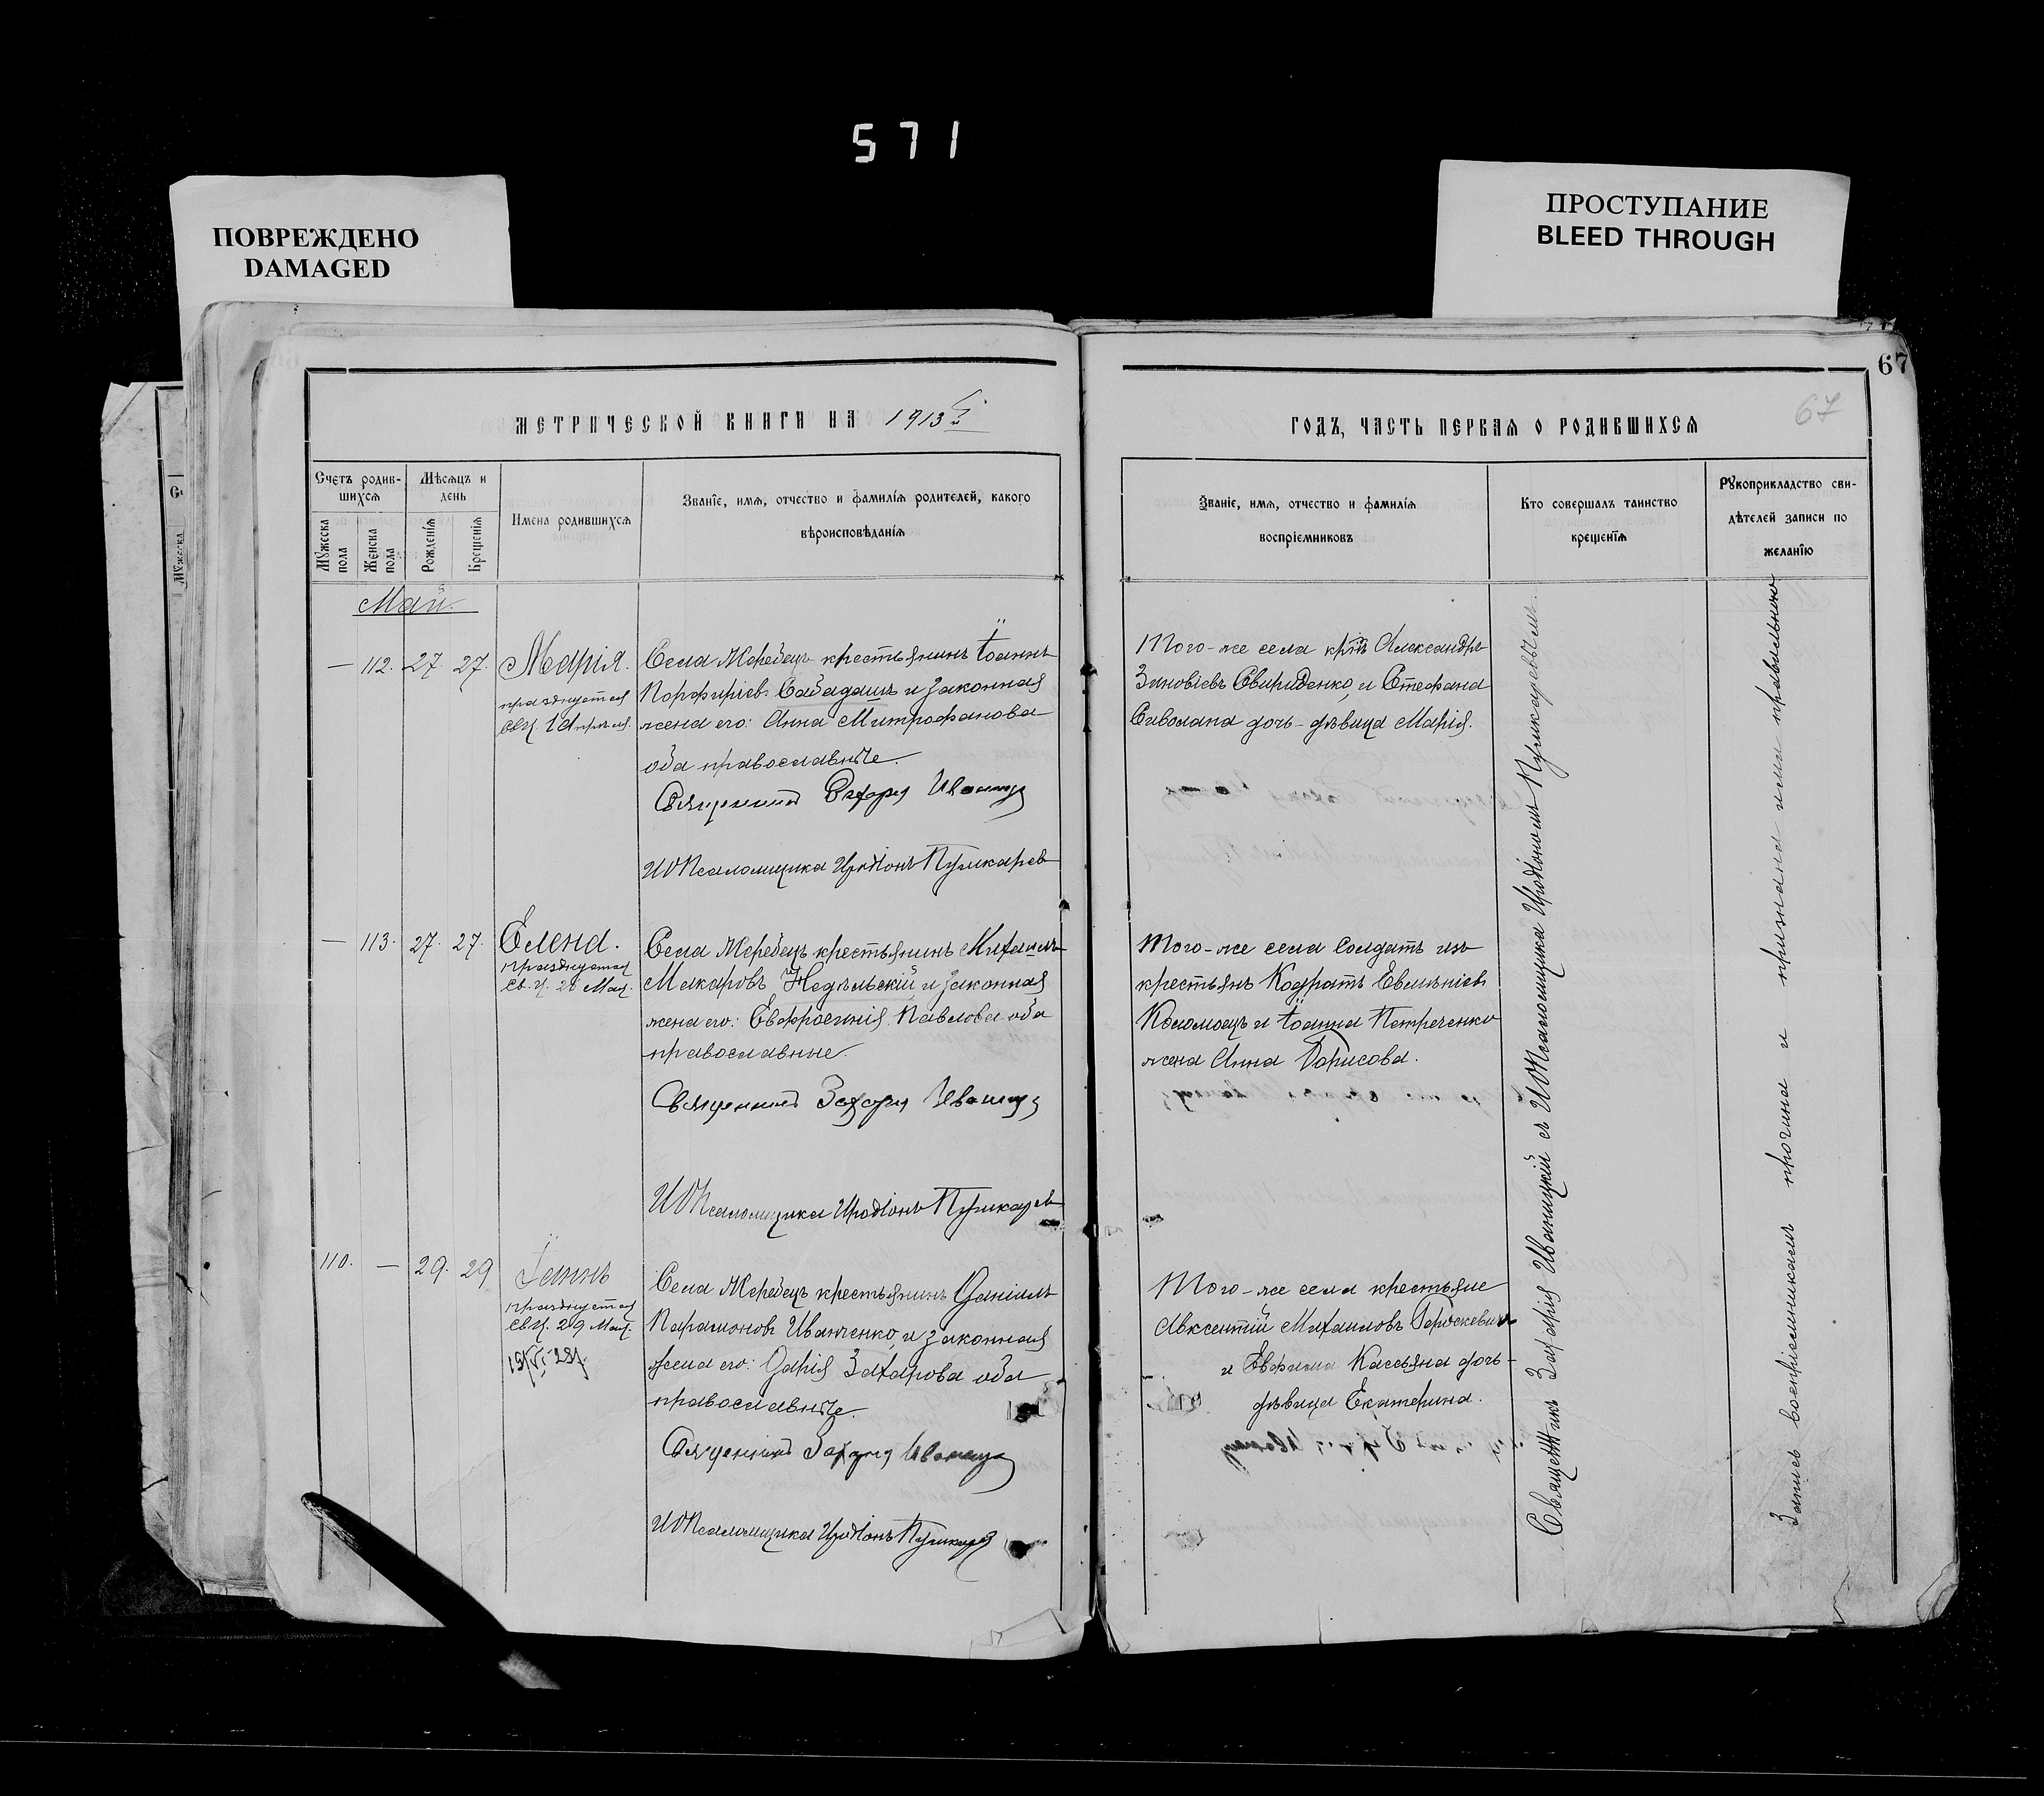 571
ПОВРЕЖДЕНО
DAMAGED
ПРОСТУПАНИЕ
BLEED THROUGH
67
67
МЕТРИЧЕСКОЙ КНИГИ НА 1913 г.
ГОДЪ, ЧАСТЬ ПЕРВАЯ О РОДИВШИХСЯ
Счетъ родив-
шихся
Мужеска пола
Женска пола
Мѣсяцъ и
день
Рожденія
Крещенія
Имена родившихся
Званіе, имя, отчество и фамилія родителей, какого
вѣроисповѣданія
Званіе, имя, отчество и фамилія
воспріемниковъ
Кто совершалъ таинство
крещенія
Рукоприкладство сви-
дѣтелей записи по
желанію
Май.
— 112. 27. 27. Марія.
празднуется
св. ц. 1 Апрѣля.
Села Жеребецъ крестьянинъ Іоаннъ
Порфиріевъ Сабадашъ и законная
жена его: Анна Митрофанова
оба православные.
Священникъ Захарія Иваницк
ИОПсаломщика Иродіонъ Пушкарев
Того-же села кр-нъ Александръ
Зиновіевъ Свириденко, и Стефана
Сиволапа дочь-дѣвица Марія.
— 113. 27. 27. Елена.
празднуется
св. ц. 21 Мая.
Села Жеребецъ крестьянинъ Михаилъ
Макаровъ Недѣльскій и законная
жена его: Евфросинія Павлова оба
православные.
Священникъ Захарія Иваницк
ИОПсаломщика Иродіонъ Пушкарев
Того-же села солдатъ изъ
крестьянъ Кодратъ Евменіевъ
Коломоецъ и Іоанна Петреченко
жена Анна Борисова.
110. — 29. 29 Іоаннъ
празднуется
св. ц. 29 Мая.
Села Жеребецъ крестьянинъ Даніилъ
Парамоновъ Иванченко, и законная
жена его: Дарія Захарова оба
православные.
Священникъ Захарія Иваницк
ИОПсаломщика Иродіонъ Пушкарев
Того-же села крестьяне
Авксентій Михаиловъ
и Евфима Кассьяна дочь-
дѣвица Екатерина.
Священникъ Захарія Иваницкій съ ИОПсаломщика Иродіономъ Пушкаревымъ.
Запись воспріемникамъ прочина и признана ими правильною